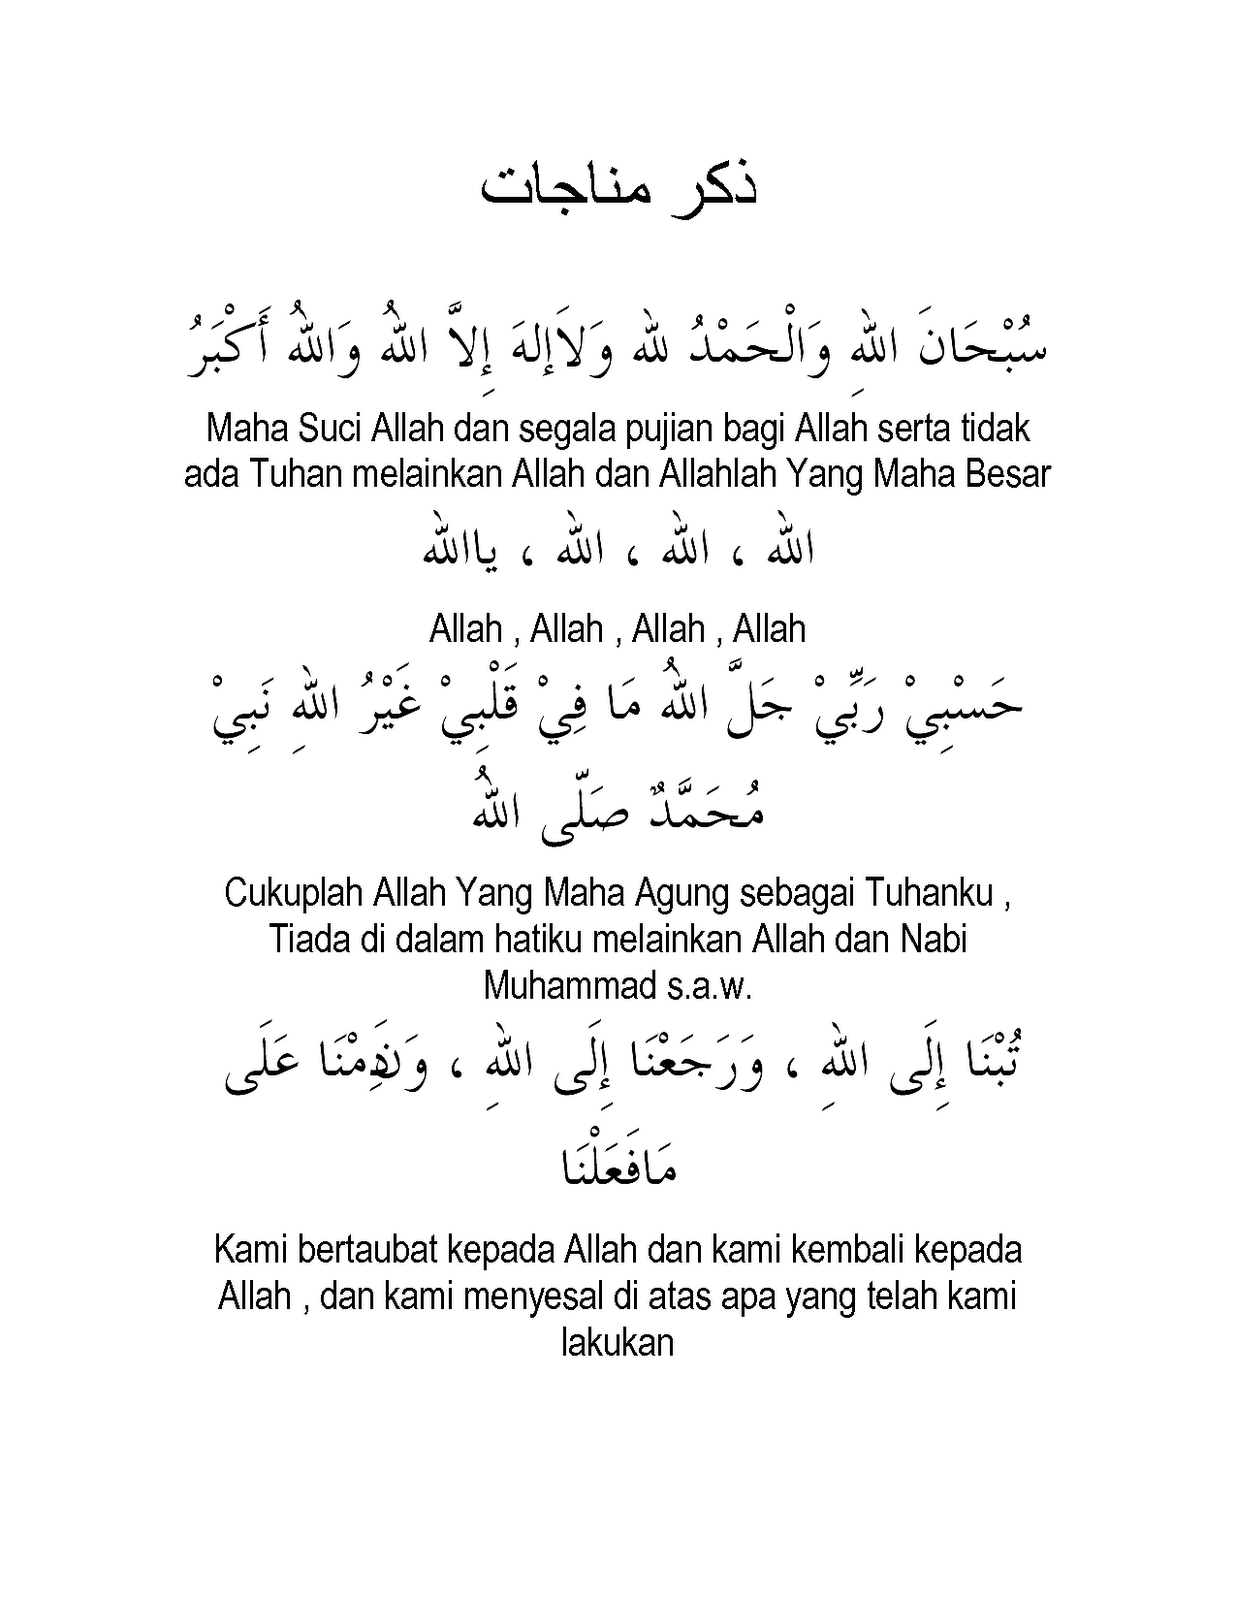 ذكر مناجات
سُبْحَانَ اللهِ وَالْحَمْدُ لله وَلاَإلهَ إِلاَّ اللهُ وَاللهُ أَكْبَرُ
Maha Suci Allah dan segala pujian bagi Allah serta tidak
ada Tuhan melainkan Allah dan Allahlah Yang Maha Besar
الله ، الله ، الله ، ياالله
Allah , Allah , Allah , Allah
حَسْبِيْ رَبِّيْ جَلَّ اللهُ مَا فِيْ قَلْبِيْ غَيْرُ اللهِ نَبِيْ
مُحَمَّدٌ صَلّى اللهُ
Cukuplah Allah Yang Maha Agung sebagai Tuhanku ,
Tiada di dalam hatiku melainkan Allah dan Nabi
Muhammad s.a.w.
تُبْنَا إِلَى اللهِ ، وَرَجَعْنَا إِلَى اللهِ ، عَلَى
مَافَعَلْنَا
Kami bertaubat kepada Allah dan kami kembali kepada
Allah , dan kami menyesal di atas apa yang telah kami
lakukan